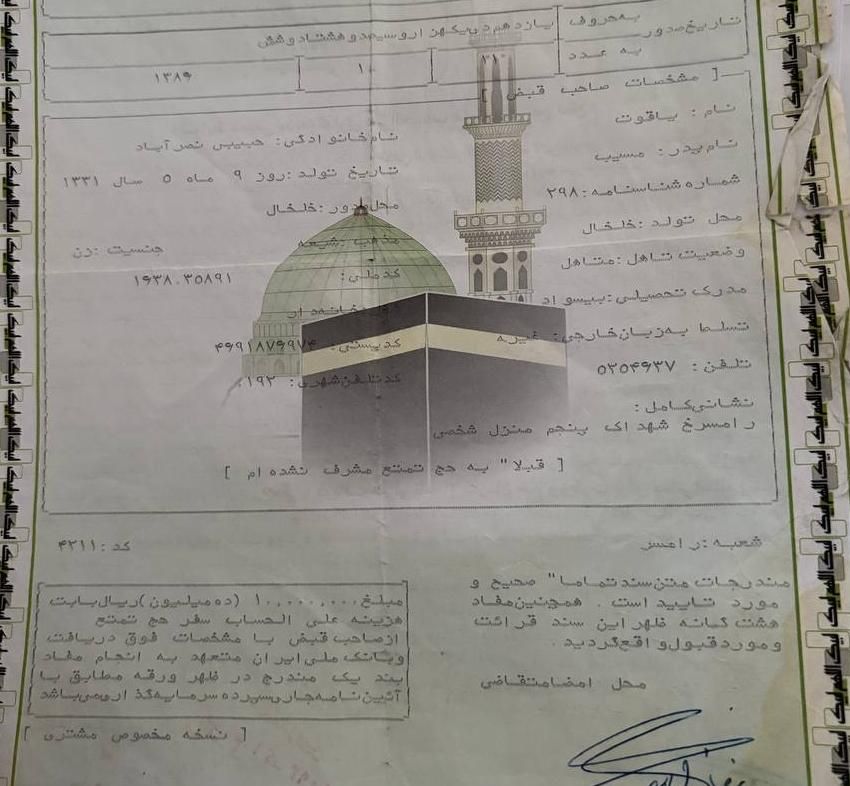 تاریخ صدور به حروف یازدهم دی یکهزار و سیصد و هشتاد و شش
به عدد ۱۱ ۱۰ ۱۳۸۶
[ مشخصات صاحب قبض ]
نام: یاقوت نام خانوادگی: حبیبی نصرآباد
نام پدر: مسیب تاریخ تولد: روز ۹ ماه ۵ سال ۱۳۳۱
شماره شناسنامه: ۲۹۸ محل صدور: خلخال
محل تولد: خلخال مذهب: شیعه جنسیت: زن
وضعیت تاهل: متاهل کد ملی: ۱۶۳۸۰۳۵۸۹۱
مدرک تحصیلی: بیسواد شغل: خانه دار
تسلط به زبان خارجی: غیره کد پستی: ۴۶۹۱۸۷۶۹۷۴
تلفن: ۵۲۵۴۶۳۷ کد تلفن شهری: ۰۱۹۲
نشانی کامل:
رامسرخ شهداک پنجم منزل شخصی
[ قبلا" به حج تمتع مشرف نشده ام ]
شعبه: رامسر کد: ۴۲۱۱
مندرجات متن سند تماما" صحیح و
مورد تایید است. همچنین مفاد
هشت گانه ظهر این سند قرائت
و مورد قبول واقع گردید.
محل امضا متقاضی
مبلغ ۱۰,۰۰۰,۰۰۰ (ده میلیون) ریال بابت
هزینه علی الحساب سفر حج تمتع
از صاحب قبض با مشخصات فوق دریافت
و بانک ملی ایران متعهد به انجام مفاد
بند یک مندرج در ظهر ورقه مطابق با
آئین نامه جاری سپرده سرمایه گذاری می باشد
[ نسخه مخصوص مشتری ]